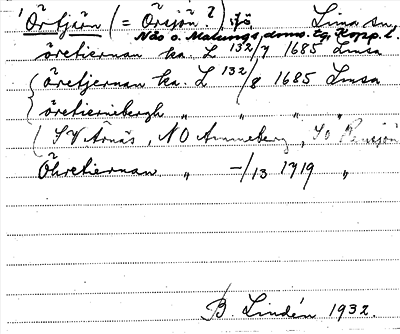 Örtjärn (= Öresjön?), sjö Lima sn,
Näs o. Malungs doms. tg, Kopp. l.
öretiernan ka. L 132/7 1685 Limsa
öretjernan ka. L 132/8 1685 Limsa
öretiernebergh " " " "
(SV Arnäs, NO Anneberg, SO
Öhretiernan " -/13 1719 "
B. Lindén 1932.